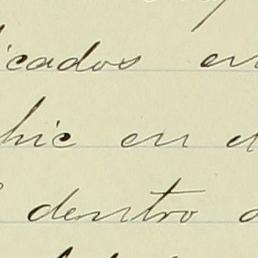 icados en
hic en e
dentro